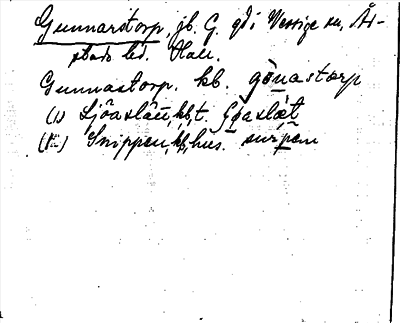 Gunnarstorp, jb. G. gd i Vessige sn, År-
stads hd. Hall.
Gunnastorp. kb. gönastorp
(1) Sjöaslätt, kb, t.
(2) Snippen, kb, hus. snipen